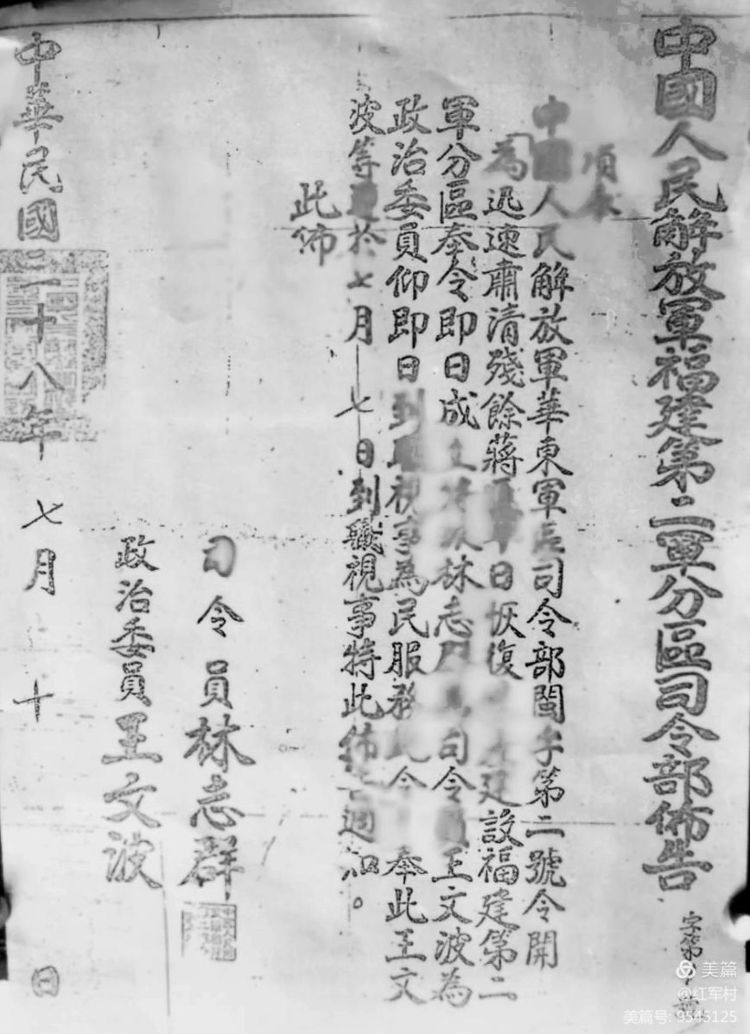 中國人民解放軍福建第二軍分區司令部佈告
字第
中國人民解放軍華東軍區司令部閩字第二號令開
「為迅速肅清殘餘蔣日恢復建設福建第二
軍分區奉令即日成林志為司令員王文波為
政治委員仰即日到職視事為民服務此令奉此王文
波等遵於七月七日到職視事特此佈告週知。
此佈
司令員林志群
政治委員王文波
中華民國三十八年七月十日
美篇
@红军村
美篇号: 9545125